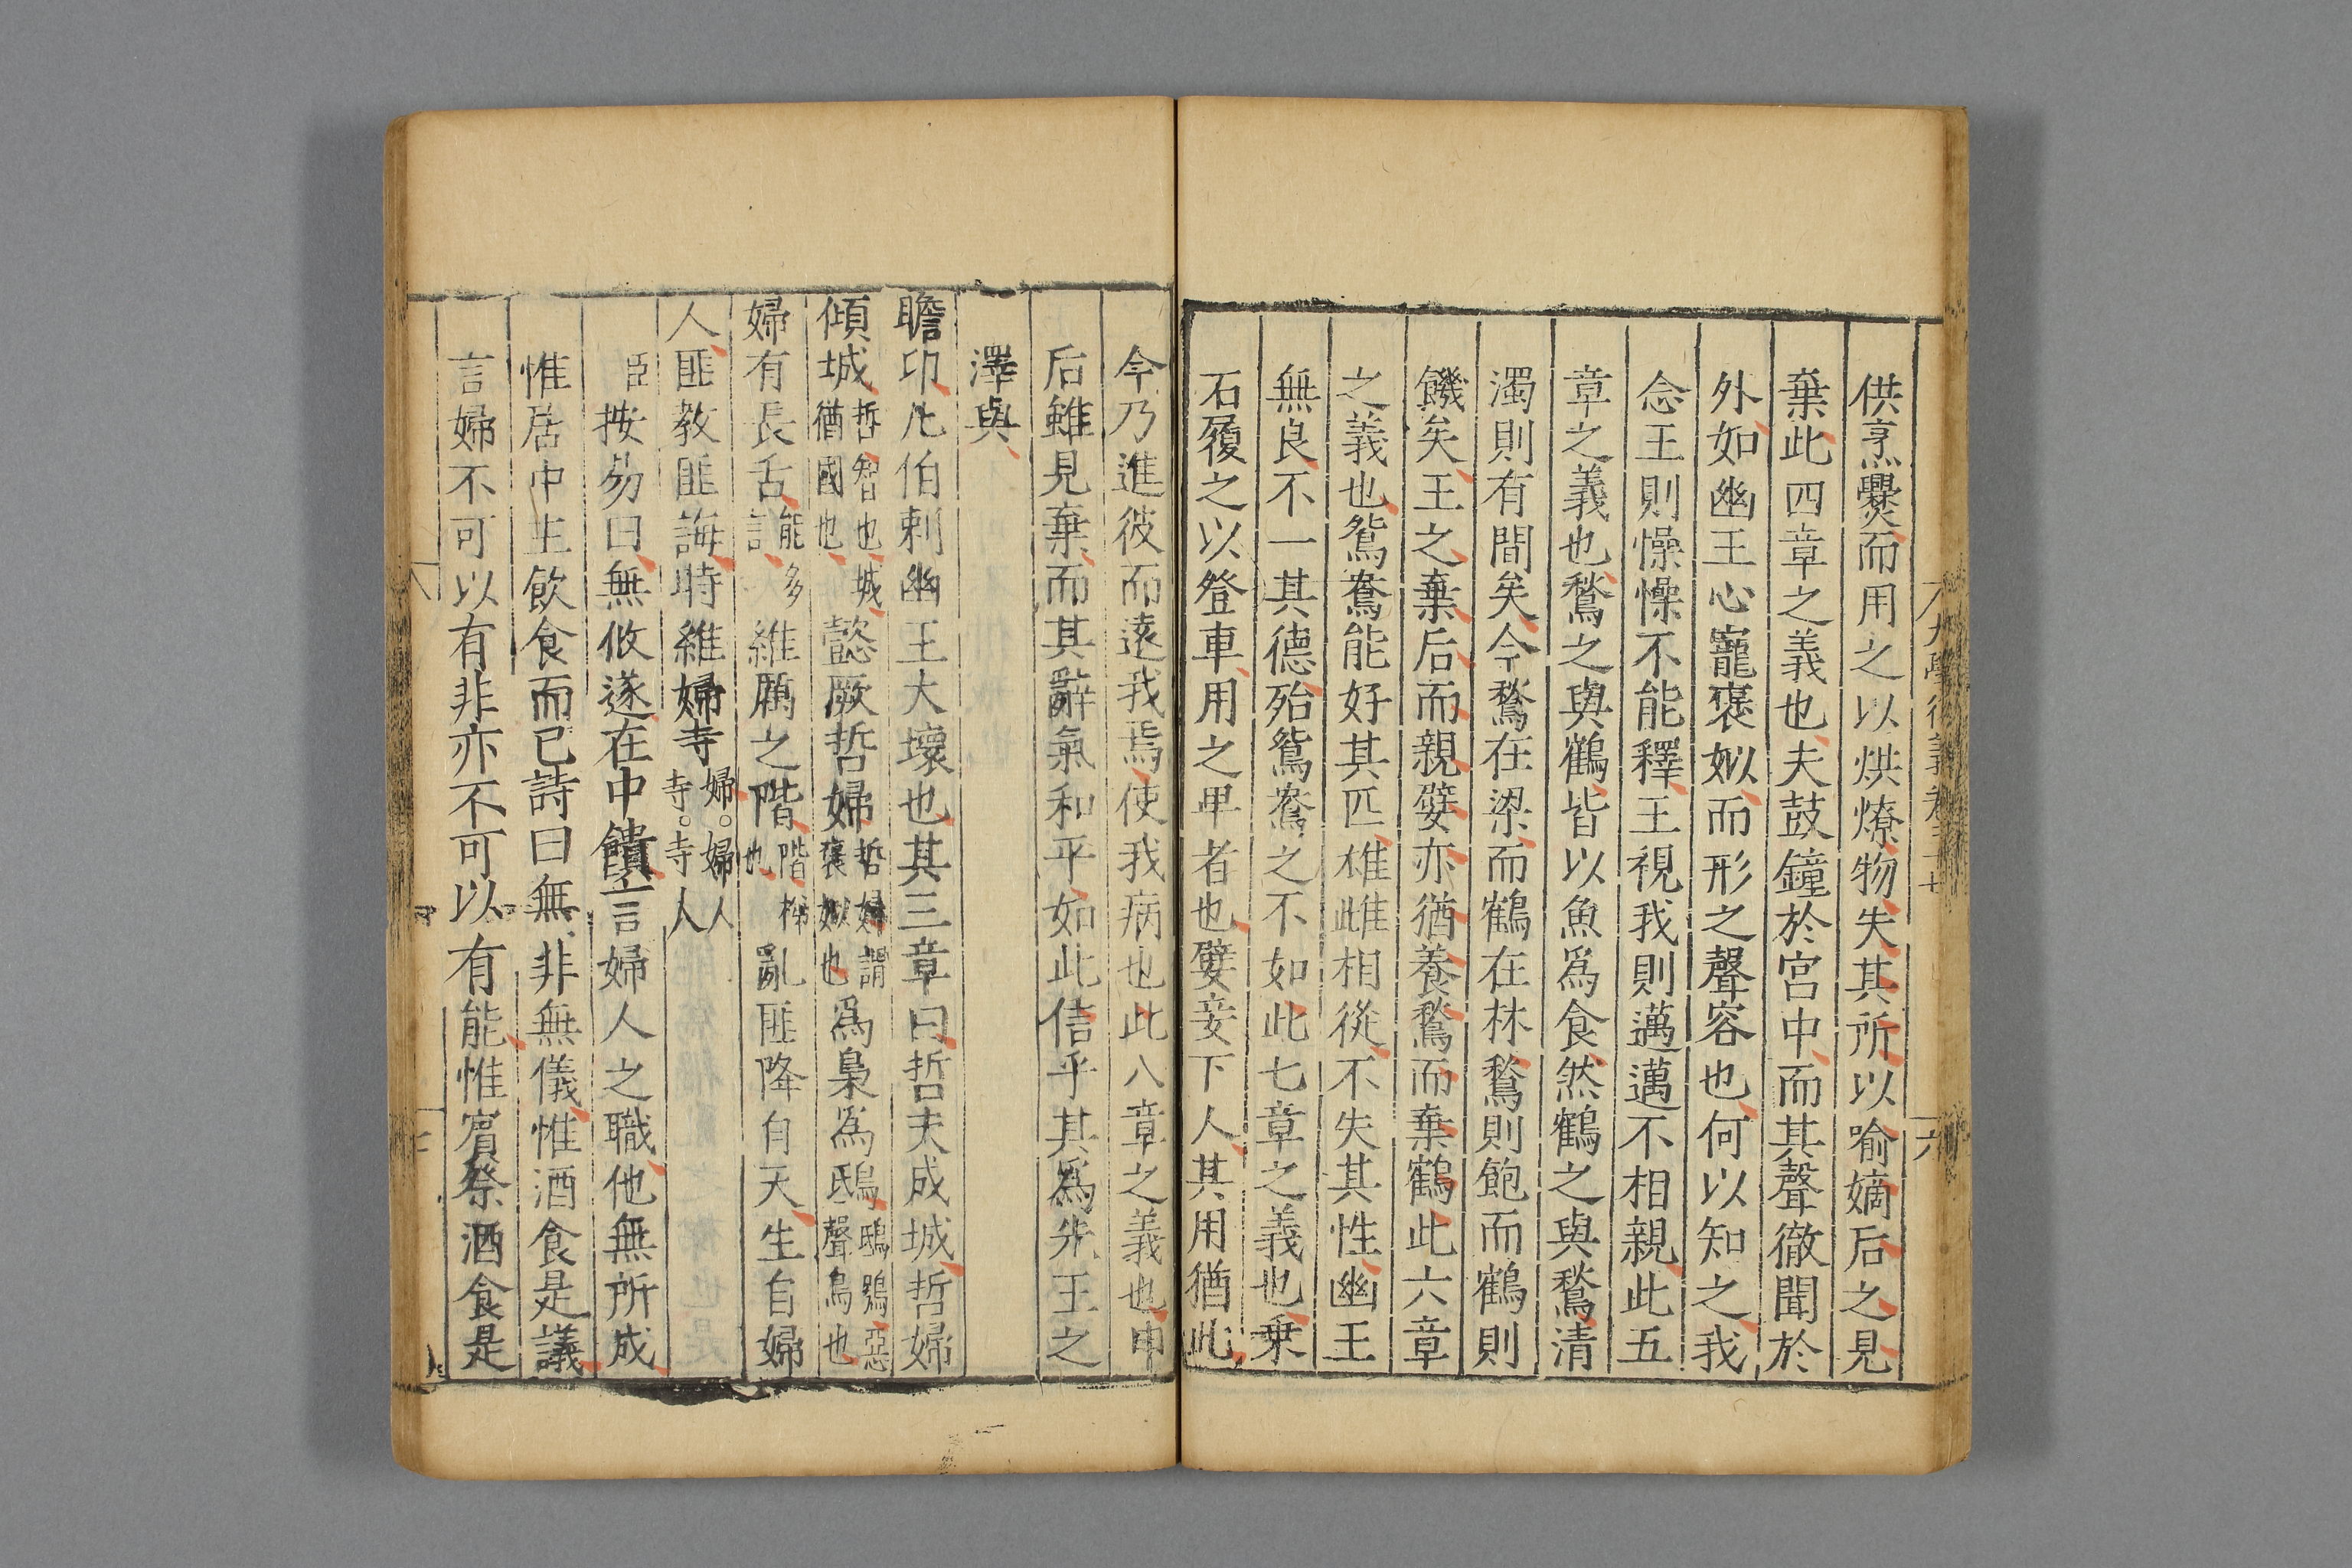 供烹爨而用之以烘燎物失其所以喻嫡后之見
棄此四章之義也夫鼓鐘於宮中而其聲徹聞於
外如幽王心寵褒姒而形之聲容也何以知之我
念王則懆懆不能釋王視我則邁邁不相親此五
章之義也鶖之與鶴皆以魚爲食然鶴之與鶖清
濁則有間矣今鶖在梁而鶴在林鶖則飽而鶴則
饑矣王之棄后而親嬖亦猶養鶖而棄鶴此六章
之義也鴛鴦能好其匹雄雌相從不失其性幽王
無良不一其德殆鴛鴦之不如此七章之義也乗
石履之以登車用之卑者也嬖妾下人其用猶此
今乃進彼而遠我焉使我病也此八章之義也申
后雖見棄而其辭氣和平如此信乎其爲先王之
澤與
瞻卬凡伯刺幽王大壞也其三章曰哲夫成城哲婦
傾城哲智也城猶國也懿厥哲婦哲婦謂褒姒也爲梟爲鴟鴟鴞惡聲鳥也
婦有長舌能多言維厲之階階梯也亂匪降自天生自婦
人匪教匪誨時維婦寺婦。婦人寺。寺人
臣按易曰無攸遂在中饋言婦人之職他無所成
惟居中主飲食而已詩曰無非無儀惟酒食是議
言婦不可以有非亦不可以有能惟賓祭酒食是